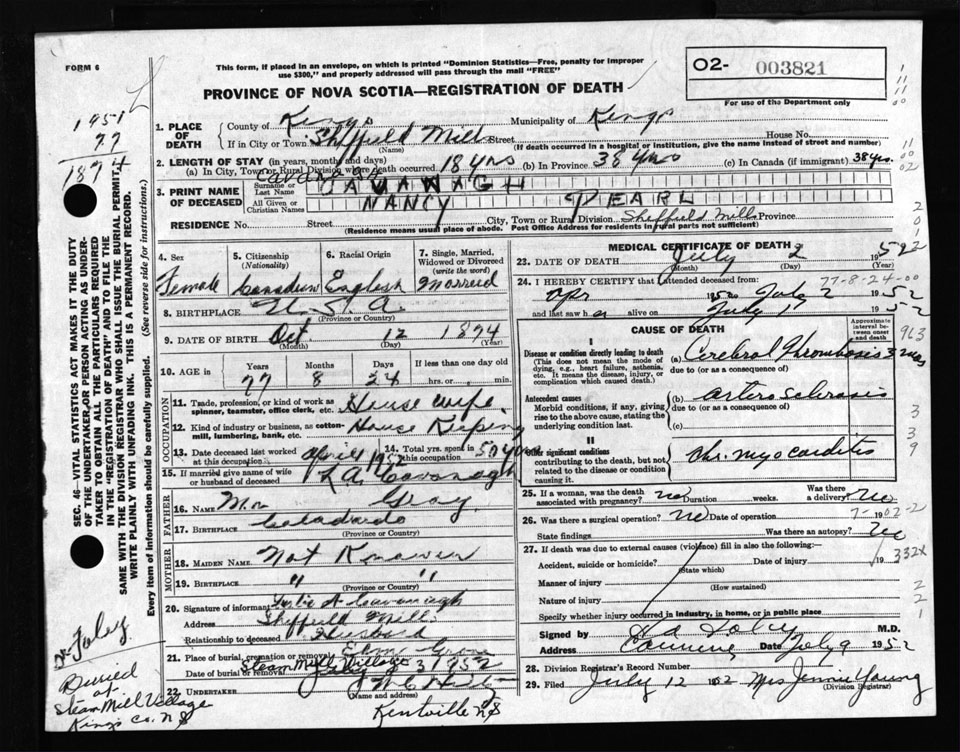 FORM 6
This form, if placed in an envelope, on which is printed "Dominion Statistics—Free, penalty for improper
use $300," and properly addressed will pass through the mail "FREE"
PROVINCE OF NOVA SCOTIA—REGISTRATION OF DEATH
O2- 003821
For use of the Department only
1951
77
1874
SEC. 46—VITAL STATISTICS ACT MAKES IT THE DUTY
OF THE UNDERTAKER OR PERSON ACTING AS UNDER-
TAKER TO OBTAIN ALL THE PARTICULARS REQUIRED
IN THE "REGISTRATION OF DEATH" AND TO FILE THE
SAME WITH THE DIVISION REGISTRAR WHO SHALL ISSUE THE BURIAL PERMIT.
WRITE PLAINLY WITH UNFADING INK. THIS IS A PERMANENT RECORD.
Every item of information should be carefully supplied. (See reverse side for instructions.)
Dr Foley
Buried
at
Steam Mill Village
Kings Co. N S
1. PLACE OF DEATH
County of Kings Municipality of Kings
If in City or Town Sheffield Mills Street House No.
(Name) (If death occurred in a hospital or institution, give the name instead of street and number)
2. LENGTH OF STAY (in years, months and days)
(a) In City, Town or Rural Division where death occurred 18 yrs (b) In Province 38 yrs (c) In Canada (if immigrant) 38 yrs.
3. PRINT NAME OF DECEASED
Surname or Last Name CAVANAGH
All Given or Christian Names NANCY PEARL
RESIDENCE No. Street City, Town or Rural Division Sheffield Mills Province
(Residence means usual place of abode. Post Office Address for residents in rural parts not sufficient)
4. Sex Female
5. Citizenship (Nationality) Canadian
6. Racial Origin English
7. Single, Married, Widowed or Divorced (write the word) Married
8. BIRTHPLACE U.S.A.
(Province or Country)
9. DATE OF BIRTH Oct. 12 1874
(Month) (Day) (Year)
10. AGE Years 77 Months 8 Days 24 If less than one day old hrs. or min.
OCCUPATION
11. Trade, profession, or kind of work as spinner, teamster, office clerk, etc. House wife
12. Kind of industry or business, as cotton-mill, lumbering, bank, etc. House Keeping
13. Date deceased last worked at this occupation April 1952
14. Total yrs. spent in this occupation 50 yrs
15. If married give name of wife or husband of deceased L A Cavanagh
FATHER
16. NAME Mr Gray
17. BIRTHPLACE Colorado
(Province or Country)
MOTHER
18. MAIDEN NAME Not Known
19. BIRTHPLACE " "
(Province or Country)
20. Signature of informant Leslie A Cavanagh
Address Sheffield Mills
Relationship to deceased Husband
21. Place of burial, cremation or removal Elm Grove
Steam Mill Village
Date of burial or removal July 3 1952
22. UNDERTAKER
(Name and address)
Kentville N S
MEDICAL CERTIFICATE OF DEATH
23. DATE OF DEATH July 2 1952
(Month) (Day) (Year)
77-8-24-00
24. I HEREBY CERTIFY that I attended deceased from
Apr 1952 to July 2 1952
and last saw her alive on July 1 1952
CAUSE OF DEATH
Approximate interval between onset and death
I
Disease or condition directly leading to death (a) Cerebral Thrombosis
(This does not mean the mode of dying, e.g., heart failure, asthenia, etc. It means the disease, injury, or complication which caused death.
due to (or as a consequence of)
Antecedent causes (b) arterio sclerosis
Morbid conditions, if any, giving rise to the above cause, stating the underlying condition last.
due to (or as a consequence of)
(c)
II
Other significant conditions Chr. myocarditis
contributing to the death, but not related to the disease or condition causing it.
25. If a woman, was the death associated with pregnancy? no Duration weeks. Was there a delivery? no
26. Was there a surgical operation? no Date of operation
State findings Was there an autopsy? no
27. If death was due to external causes (violence) fill in also the following:—
Accident, suicide or homicide? Date of injury 19
(State which)
Manner of injury
(How sustained)
Nature of injury
Specify whether injury occurred in industry, in home, or in public place
332X
Signed by Foley M.D.
Address Canning Date July 9 1952
28. Division Registrar's Record Number
29. Filed July 12 1952 Mrs Jennie Young
(Division Registrar)